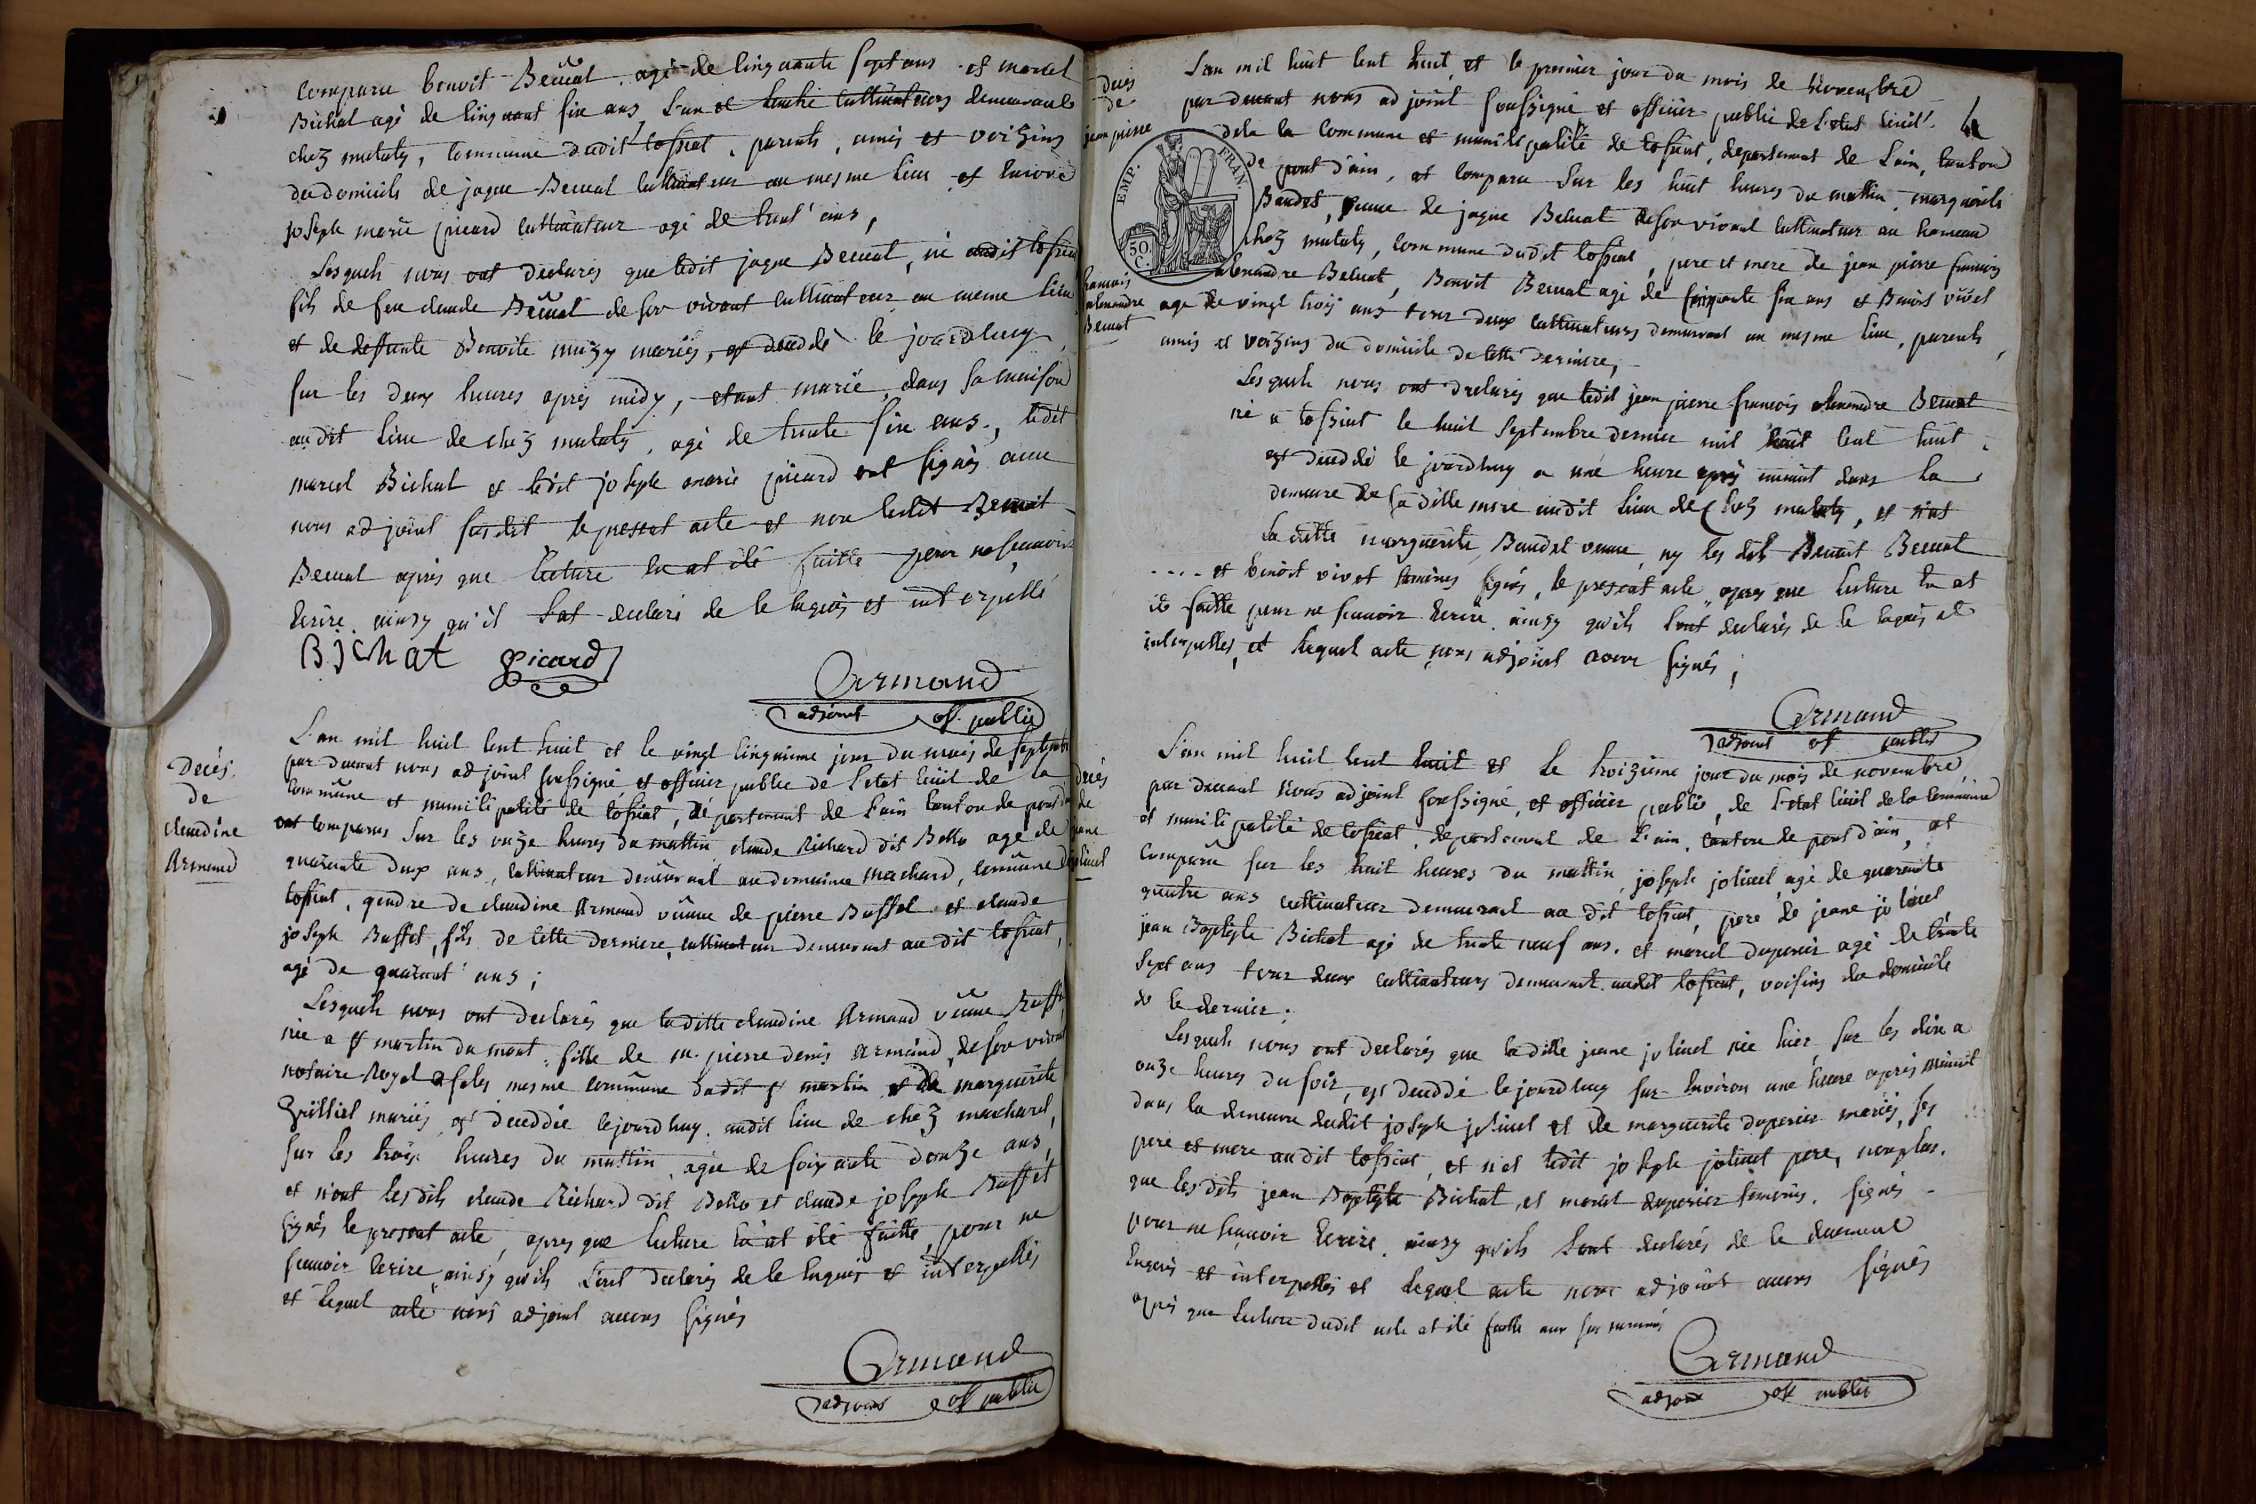 comparu benoit Becuat agé de cinquante sept ans et marcel
Bichat agé de cinquant six ans, l'un et lautre cultivateurs demeurants
chez mutaty, commune dudit tossiat, parents, amis et voizins
du domicile de jaque Becuat cultivateur au mesme lieu et
joseph marie picard cultivateur agé de trent' ans,
Lesquels nous ont declarés que ledit jaque Becuat, né audit tossiat
fils de feu claude Becuat de son vivant cultivateur au meme lieu
et de deffunte Benoite mariés, est decedé le jourdhuy
sur les deux heures après midy, etant marié, dans sa maison
audit lieu de chez mutaty, agé de trente six ans, ledit
marcel Bichat et ledit joseph marie picard ont signés avec
nous adjoint susdit le present acte et non ledit Benoit
Becuat après que lecture lu at été faitte pour ne sçauoir
Ecrire ainsy qu'il lat declaré de ce enquis et interpellé
Bichat picard
Armand
adjoint of. public
Decés
de
claudine
Armand
L'an mil huit cent huit et le vingt cinquieme jour du mois de septembre
par devant nous adjoint soussigné et officier public de l'etat civil de la
commune et municipalité de tossiat, departement de l'ain canton de pont d'ain
ont comparus sur les onze heures du mattin claude Richard dit Bollo agé de
quarante deux ans, cultivateur demeurant au domaine machard, commune de
tossiat, gendre de claudine Armand veuve de pierre Buffet et claude
joseph Buffet, fils de cette derniere, cultivateur demeurant au dit tossiat,
agé de quarant' ans;
Lesquels nous ont declarés que laditte claudine Armand veuve Buffet
née a st martin du mont, fille de m. pierre denis Armand, de son vivant
notaire Royal mesme commune dudit st martin et de marguerite
mariés, est decedée lejourdhuy audit lieu de chez machard,
sur les trois heures du mattin, agée de soixante douze ans,
et n'ont lesdits claude Richard dit Bollo et claude joseph Buffet
signés le present acte, apres que lecture lu at été faitte, pour ne
sçauoir ecrire ainsy qu'ils l'ont declarés de ce enquis et interpellés
et lequel acte nous adjoint avons signés
Armand
adjoint of public
decés
de
jean pierre
francois
alexandre
Becuat
L'an mil huit cent huit, et le premier jour du mois de novembre
par devant nous adjoint soussigné et officier public de l'etat civil
de la commune et municipalité de tossiat, departement de l'ain, canton
de pont d'ain, et comparu sur les huit heures du mattin, marguerite
Baudet, veuve de jaque Becuat de son vivant cultivateur au hameau
chez mutaty, commune dudit tossiat, pere et mere de jean pierre francois
alexandre Becuat, Benoit Becuat agé de cinquante six ans et Benoit vivet
agé de vingt trois ans tous deux cultivateurs demeurant au mesme lieu, parents,
amis et voizins du domicile de cette derniere,
Lesquels nous ont declarés que ledit jean pierre francois alexandre Becuat
né a tossiat le huit septembre dernier mil huit cent huit
est decedé le jourdhuy a une heure après minuit dans la
demeure de sa ditte mere audit lieu de chez mutaty, et n'at
la ditte marguerite Baudet veuve, ny les dits Benoit Becuat
.... et benoit vivet temoins signés, le present acte, apres que lecture lu at
été faitte pour ne sçauoir Ecrire ainsy qu'ils l'ont declarés de ce enquis et
interpellés, et lequel acte nous adjoint avons signés;
Armand
adjoint of public
EMP. FRAN.
50.
C.
decés
de
jeane
jolivet
L'an mil huit cent huit et le troizieme jour du mois de novembre,
par devant nous adjoint soussigné, et officier public, de l'etat civil de la commune
et municipalité de tossiat, departement de l'ain, canton de pont d'ain, at
comparu sur les huit heures du mattin joseph jolivet, agé de quarente
quatre ans cultivateur demeurant au dit tossiat, pere de jeane jolivet
jean Baptiste Bichat agé de trente neuf ans, et marcel duperier agé de trente
sept ans tous deux cultivateurs demeurant audit tossiat, voisins du domicile
de ce dernier;
Lesquels nous ont declarés que laditte jeane jolivet née hier, sur les dix a
onze heures du soir, est decedée lejourdhuy sur environ une heure après minuit
dans la demeure dudit joseph jolivet et de marguerite duperier mariés, ses
pere et mere audit tossiat, et n'at ledit joseph jolivet pere, nonplus
que lesdits jean Baptiste Bichat, et marcel duperier temoins, signés
pour ne sçauoir Ecrire, ainsy qu'ils l'ont declarés de ce duement
Enquis et interpellés et lequel acte nous adjoint avons signés
après que lecture dudit acte at été faitte aux sus nommés
Armand
adjoint of public